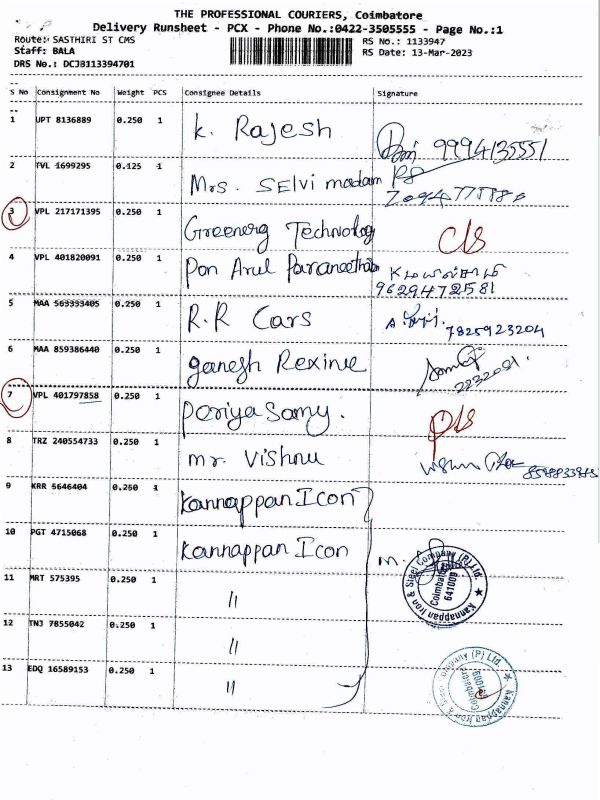 THE PROFESSIONAL COURIERS, Coimbatore
Delivery Runsheet - PCX - Phone No.:0422-3505555 - Page No.:1
Route: SASTHIRI ST CMS
RS No.: 1133947
Staff: BALA
RS Date: 13-Mar-2023
DRS No.: DCJB113394701
S No Consignment No Weight PCS Consignee Details Signature
1 UPT 8136889 0.250 1 K. Rajesh 9994135551
2 TVL 1699295 0.125 1 Mrs. SELVI madam
3 VPL 217171395 0.250 1 Greenerg Technology C/S
4 VPL 401820091 0.250 1 Pon Arul
9629472581
5 MAA 563333405 0.250 1 R.R Cars 7825923204
6 MAA 859386440 0.250 1 ganesh Rexine
7 VPL 401797858 0.250 1 periya Samy.
8 TRZ 240554733 0.250 1 mr. Vishnu
9 KRR 5646404 0.250 1 Kannappan Icon
10 PGT 4715068 0.250 1 Kannappan Icon M.
Kannappan Iron & Steel Company (P) Ltd. ★
Coimbatore
641009
11 MRT 575395 0.250 1 "
12 TNJ 7855042 0.250 1 "
13 EDQ 16589153 0.250 1 "
Kannappan Iron & Steel Company (P) Ltd. ★
Coimbatore
641009